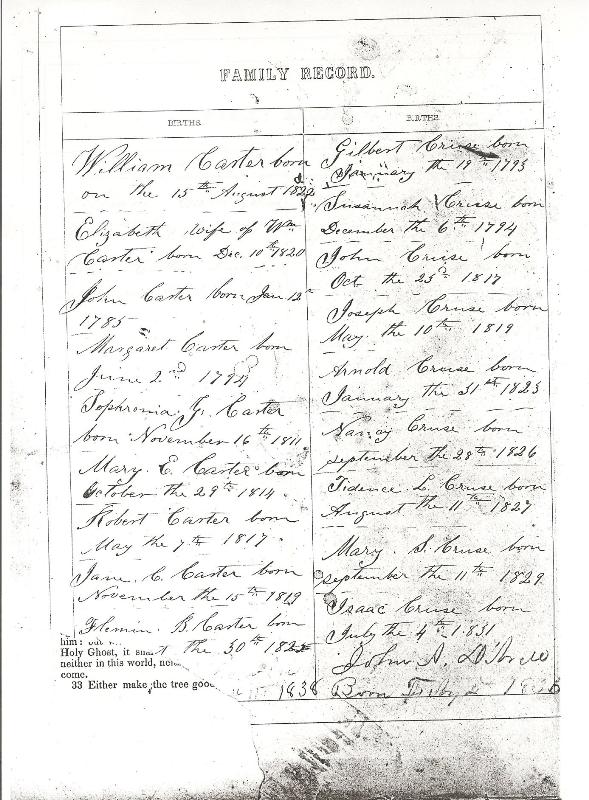 FAMILY RECORD.
BIRTHS.
William Carter born
on the 15th August
Elizabeth wife of Wm
Carter born Dec. 10th 1820
John Carter born Jan 12th
1785
Margaret Carter born
June 2nd 1794
Sophronia Y. Carter
born November 16th 1811
Mary E. Carter born
October the 29th 1814.
Robert Carter born
May the 7th 1817.
Jane C. Carter born
November the 15th 1819
Flemin B. Carter born
the 30th
him:
Holy Ghost, it
neither in this world,
come.
33 Either make the tree
1838
BIRTHS.
Gilbert Cruse born
January the 19th 1793
Susannah Crusse born
December the 6th 1794
John Cruse born
Oct the 23d 1817
Joseph Cruse born
May the 10th 1819
Arnold Cruse born
January the 31st 1823
Nancy Cruse born
september the 28th 1826
Tidence L. Cruse born
August the 11th 1827
Mary. S. Cruse born
september the 11th 1829
Isaac Cruse born
July the 4th 1831
John A.
Born